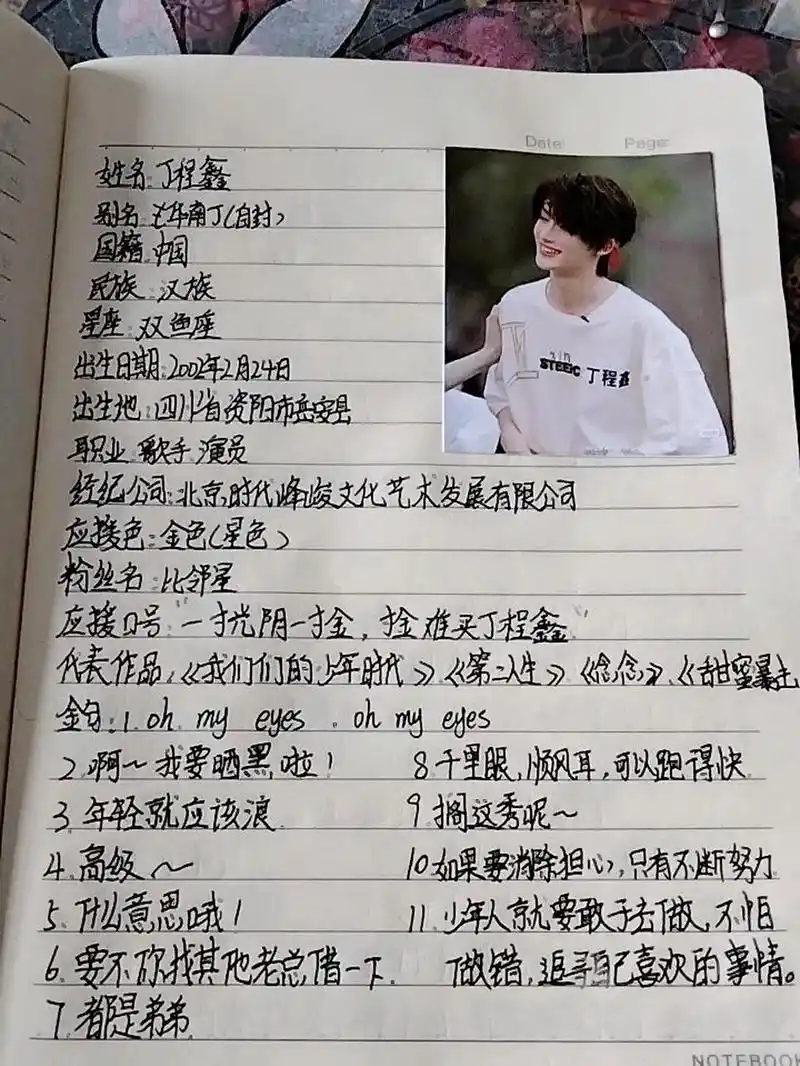 Date: Page:
姓名:丁程鑫
别名:芒华南丁(自封)
国籍:中国
民族:汉族
星座:双鱼座
出生日期:2002年2月24日
出生地:四川省资阳市岳安县
职业 歌手 演员
xin
STEEIC 丁程鑫
经纪公司:北京时代峰峻文化艺术发展有限公司
应援色:金色(星色)
粉丝名:比邻星
应援口号“一寸光阴一寸金,寸金难买丁程鑫”
代表作品,《我们们的少年时代》《第二人生》《念念》,《甜蜜暴击
金句:1.oh my eyes 。oh my eyes
2.啊~我要晒黑啦!
3.年轻就应该浪
4.高级~
5.什么意思哦!
6.要不你找其他老总借一下.
7.都是弟弟
8.千里眼,顺风耳,可以跑得快
9.搁这秀呢~
10.如果要消除担心,只有不断努力
11.少年人就要敢于去做,不怕
做错,追寻自己喜欢的事情。
NOTEBOOK